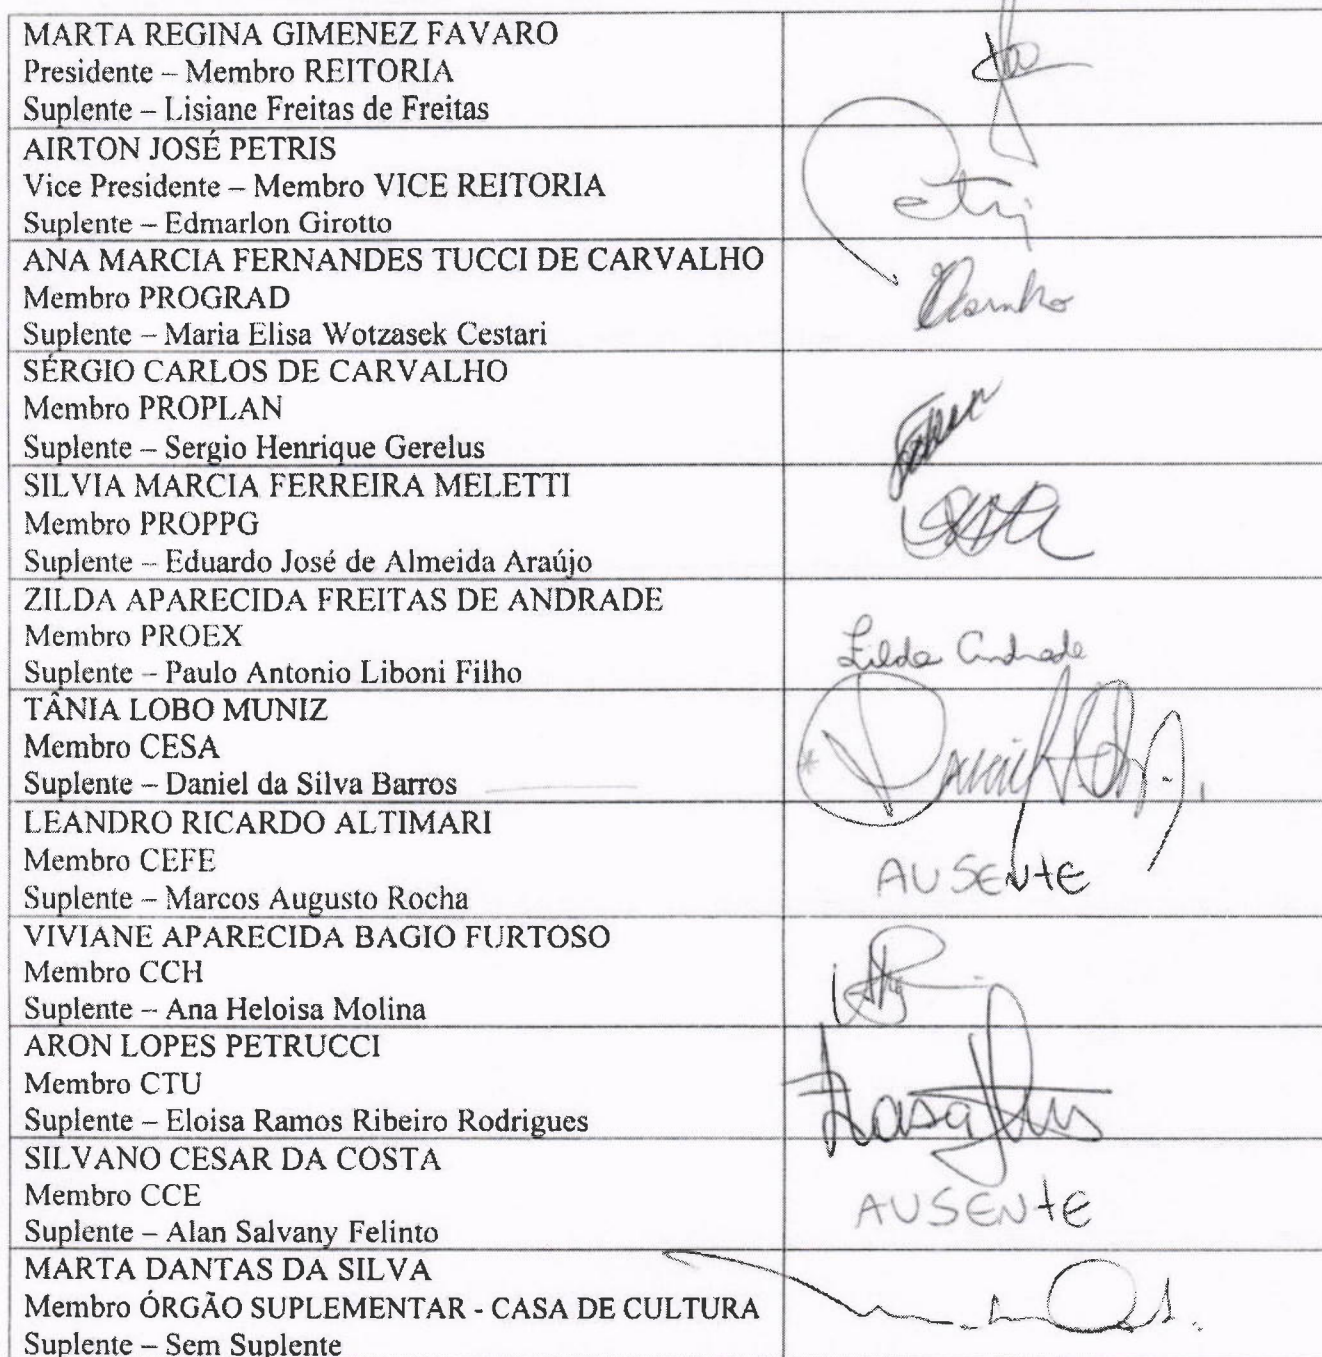 MARTA REGINA GIMENEZ FAVARO
Presidente – Membro REITORIA
Suplente – Lisiane Freitas de Freitas
AIRTON JOSÉ PETRIS
Vice Presidente – Membro VICE REITORIA
Suplente – Edmarlon Girotto
ANA MARCIA FERNANDES TUCCI DE CARVALHO
Membro PROGRAD
Suplente – Maria Elisa Wotzasek Cestari
SÉRGIO CARLOS DE CARVALHO
Membro PROPLAN
Suplente – Sergio Henrique Gerelus
SILVIA MARCIA FERREIRA MELETTI
Membro PROPPG
Suplente – Eduardo José de Almeida Araújo
ZILDA APARECIDA FREITAS DE ANDRADE
Membro PROEX
Suplente – Paulo Antonio Liboni Filho
Zilda Andrade
TÂNIA LOBO MUNIZ
Membro CESA
Suplente – Daniel da Silva Barros
LEANDRO RICARDO ALTIMARI
Membro CEFE
Suplente – Marcos Augusto Rocha
AUSENTE
VIVIANE APARECIDA BAGIO FURTOSO
Membro CCH
Suplente – Ana Heloisa Molina
ARON LOPES PETRUCCI
Membro CTU
Suplente – Eloisa Ramos Ribeiro Rodrigues
SILVANO CESAR DA COSTA
Membro CCE
Suplente – Alan Salvany Felinto
AUSENTE
MARTA DANTAS DA SILVA
Membro ÓRGÃO SUPLEMENTAR - CASA DE CULTURA
Suplente – Sem Suplente